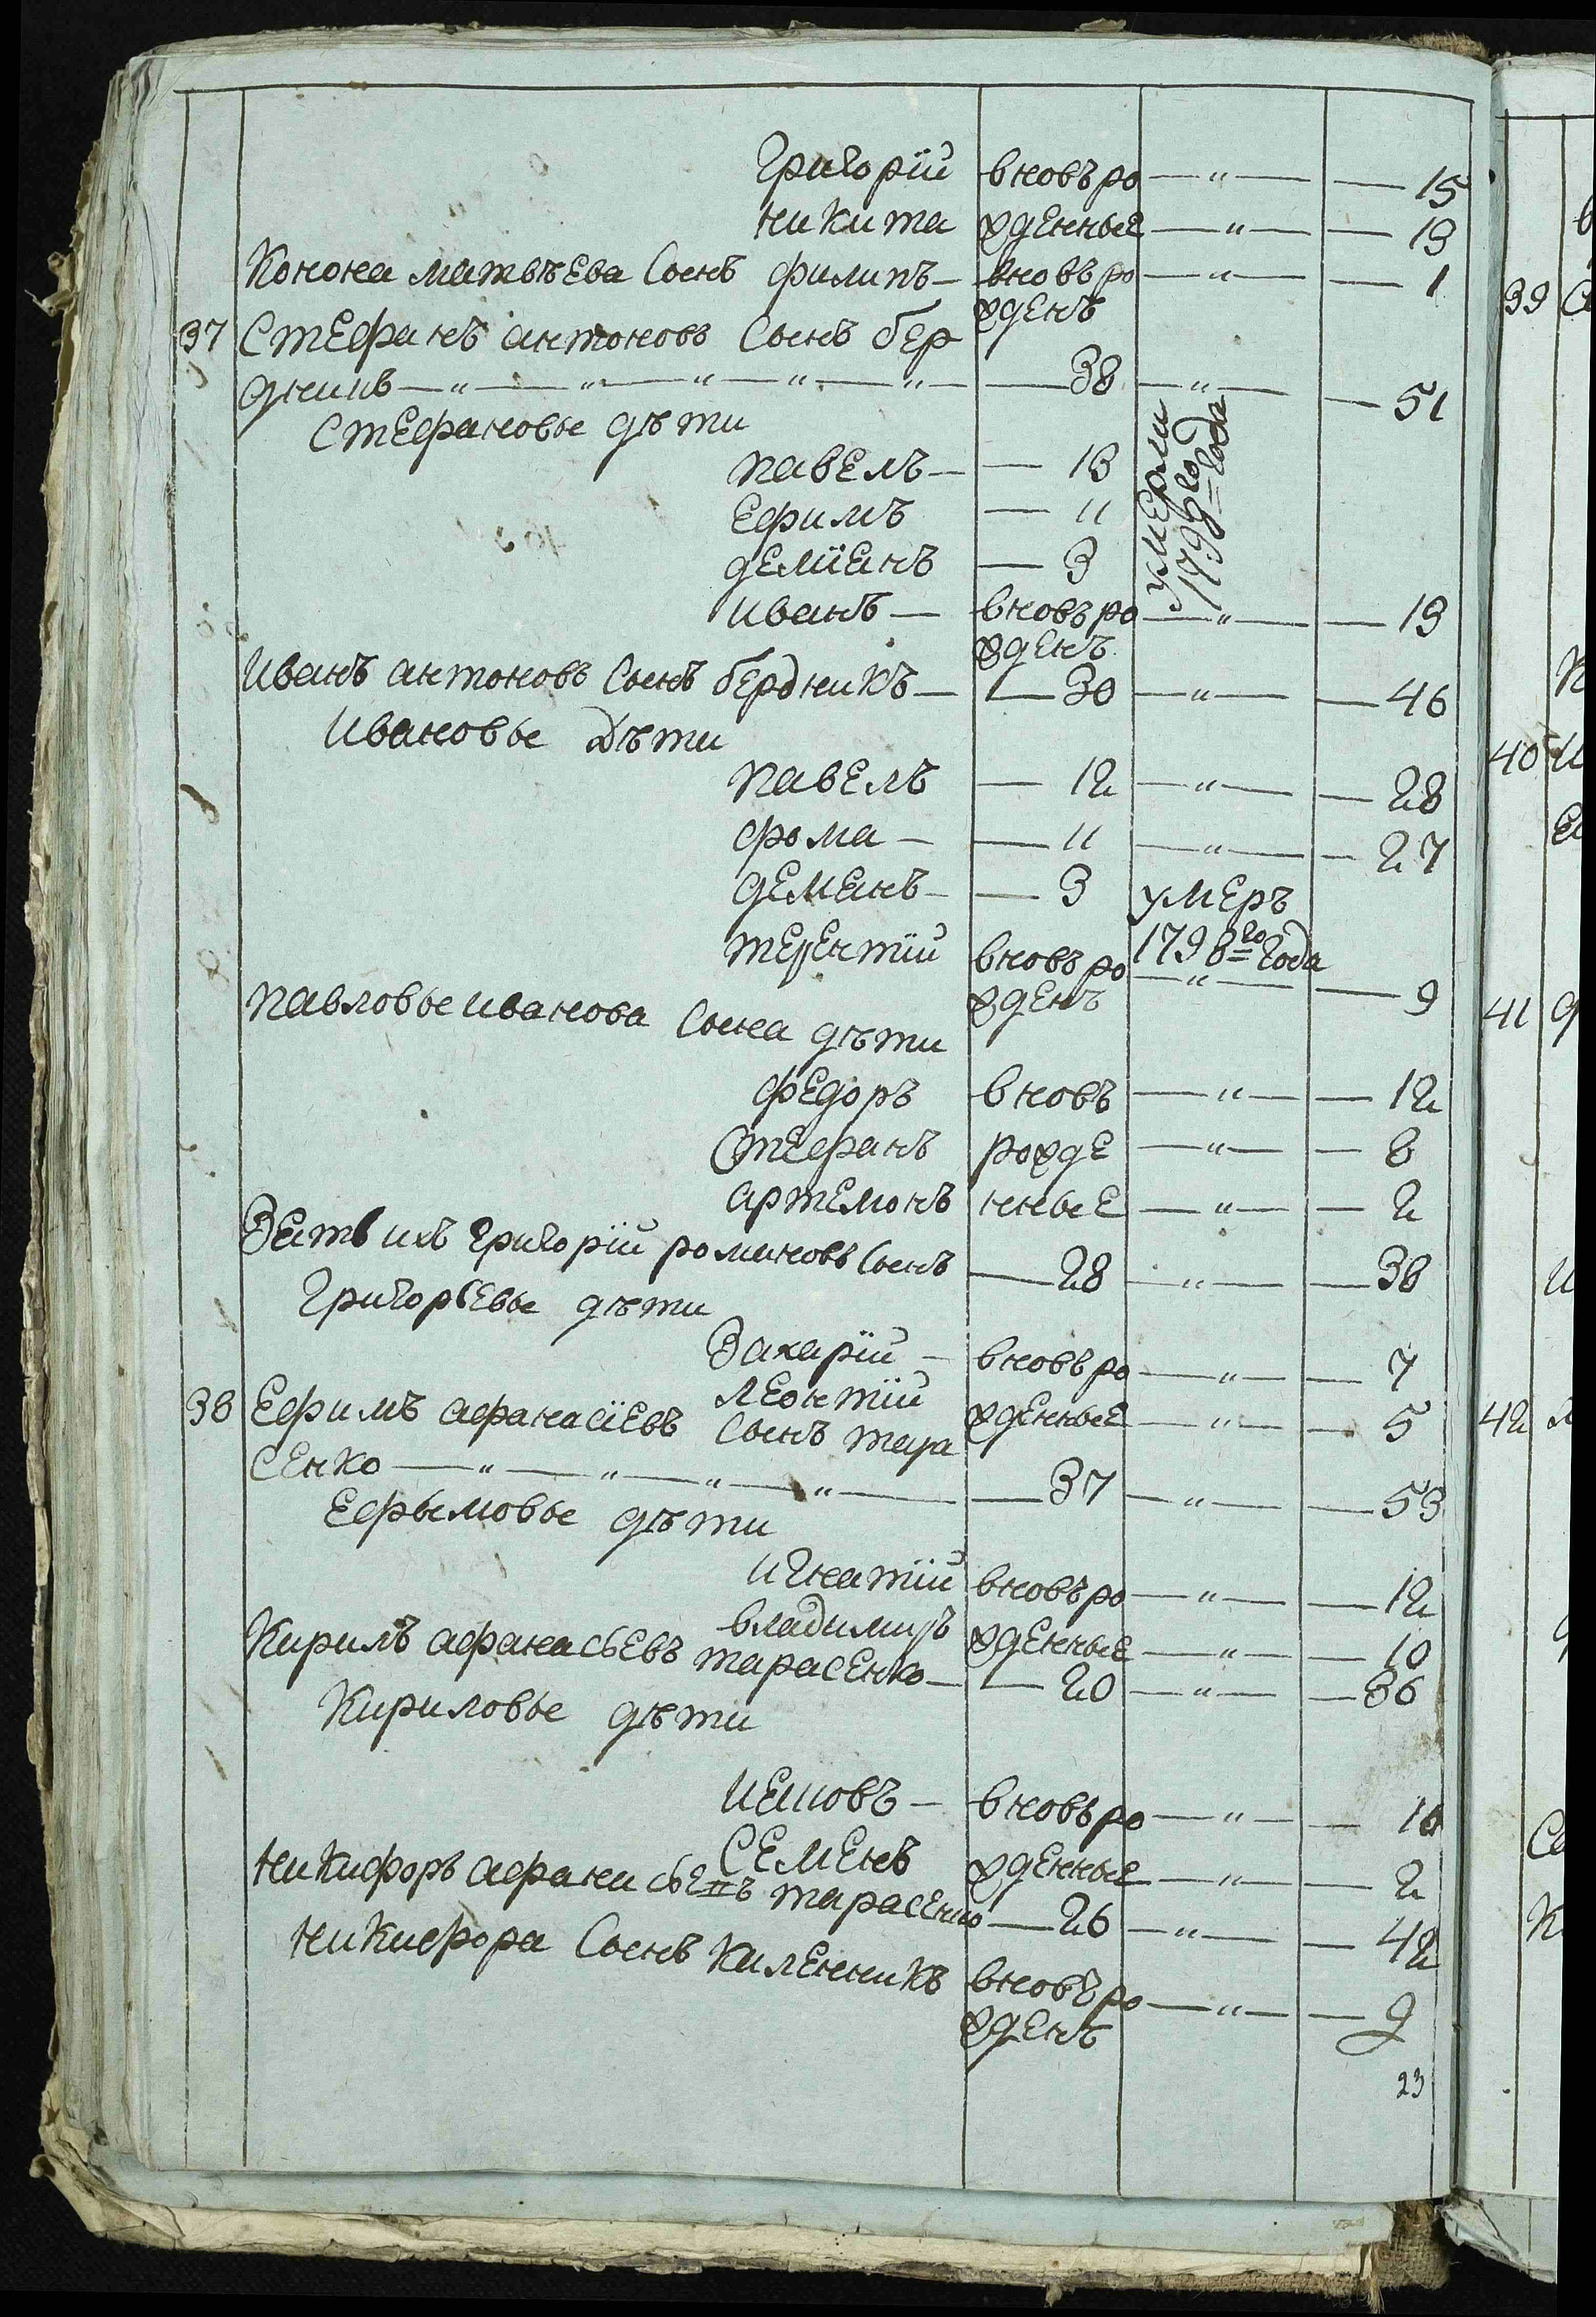 Григорїй вновъ ро — " — — 15
никита жденные — " — — 13
Конона матвѣева сынъ филипъ — вновъ ро — " — — 1
жденъ
37 Стефанъ антоновъ сынъ бер
дникъ — " — " — " — " — " — — 38 — " — — 51
Стефановы дѣти
павелъ — — 13 умерли
ефимъ — 11 1798го года
демїанъ — 3
иванъ — вновъ ро — " — — 13
жденъ
Иванъ антоновъ сынъ бердникъ — — 30 — " — — 46
Ивановы дѣти
павелъ — 12 — " — — 28
фома — — 11 — " — — 27
деманъ — — 3 умеръ
1798го года
терентїй вновъ ро — " — — 9
жденъ
павловы иванова сына дѣти
федоръ вновъ — " — — 12
Стефанъ рожде — " — — 8
артемонъ нные — " — — 2
Зять ихъ григорїй романовъ сынъ — 28 — " — — 38
Григорьевы дѣти
Захарїй — вновъ ро — " — — 7
леонтїй жденные — " — — 5
38 Ефимъ афанасїевъ сынъ тара
сенко — " — " — " — " — — 37 — " — — 53
Ефымовы дѣти
игнатїй вновъ ро — " — — 12
владимиръ жденные — " — — 10
Кирилъ афанасьевъ тарасенко — — 20 — " — — 36
Кириловы дѣти
Ияковъ — вновъ ро — " — — 10
Семенъ жденные — " — — 2
никифоръ афанасьевъ тарасенко — 26 — " — — 42
никифора сынъ каленникъ вновъ ро — " — — 9
жденъ
23
39
40
41
42